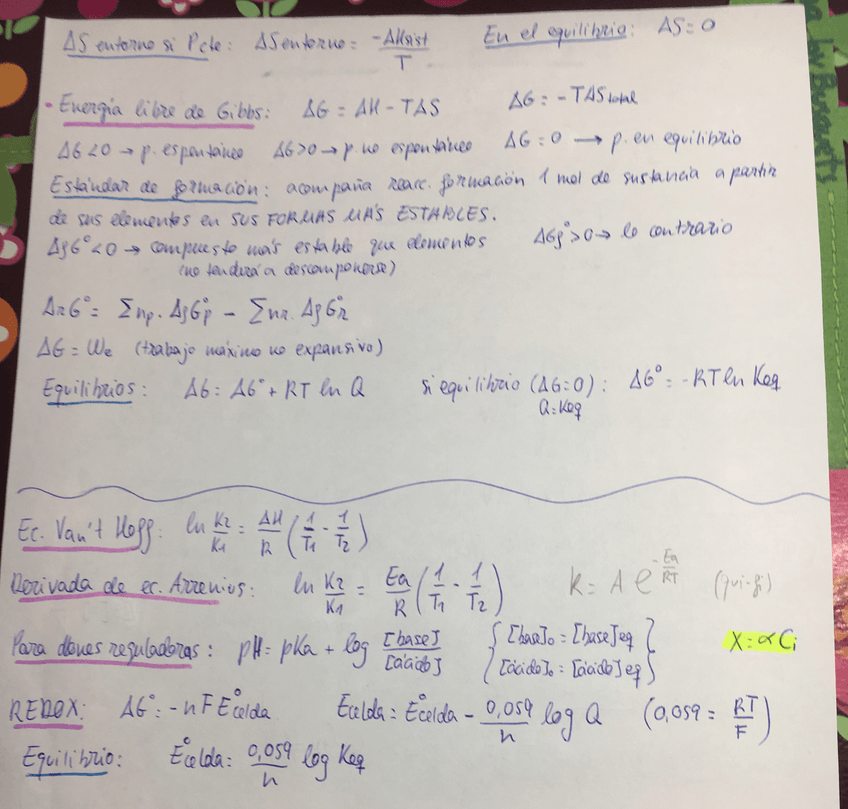 ΔS entorno si P cte: ΔS entorno = -ΔHsist/T En el equilibrio: ΔS = 0
• Energía libre de Gibbs: ΔG = ΔH - TΔS ΔG = -TΔS total
ΔG < 0 → p. espontáneo ΔG > 0 → p. no espontáneo ΔG = 0 → p. en equilibrio
Estándar de formación: acompaña reacc. formación 1 mol de sustancia a partir
de sus elementos en SUS FORMAS MÁS ESTABLES.
ΔfG° < 0 → compuesto más estable que elementos ΔGf° > 0 → lo contrario
(no tenderá a descomponerse)
ΔrG° = Σnp · ΔfG°p - Σnr · ΔfG°r
ΔG = We (trabajo máximo no expansivo)
Equilibrios: ΔG = ΔG° + RT ln Q si equilibrio (ΔG = 0): ΔG° = -RT ln Keq
Q = Keq
Ec. Van't Hoff: ln K2/K1 = ΔH/R (1/T1 - 1/T2)
Derivada de ec. Arrenius: ln K2/K1 = Ea/R (1/T1 - 1/T2) K = A e^-Ea/RT (qui-fi)
Para dones reguladoras: pH = pKa + log [base]/[ácido] { [base]o = [base]eq }
{ [ácido]o = [ácido]eq } X = αCi
REDOX: ΔG° = -nFE°celda Ecelda = E°celda - 0,059/n log Q (0,059 = RT/F)
Equilibrio: E°celda = 0,059/n log Keq